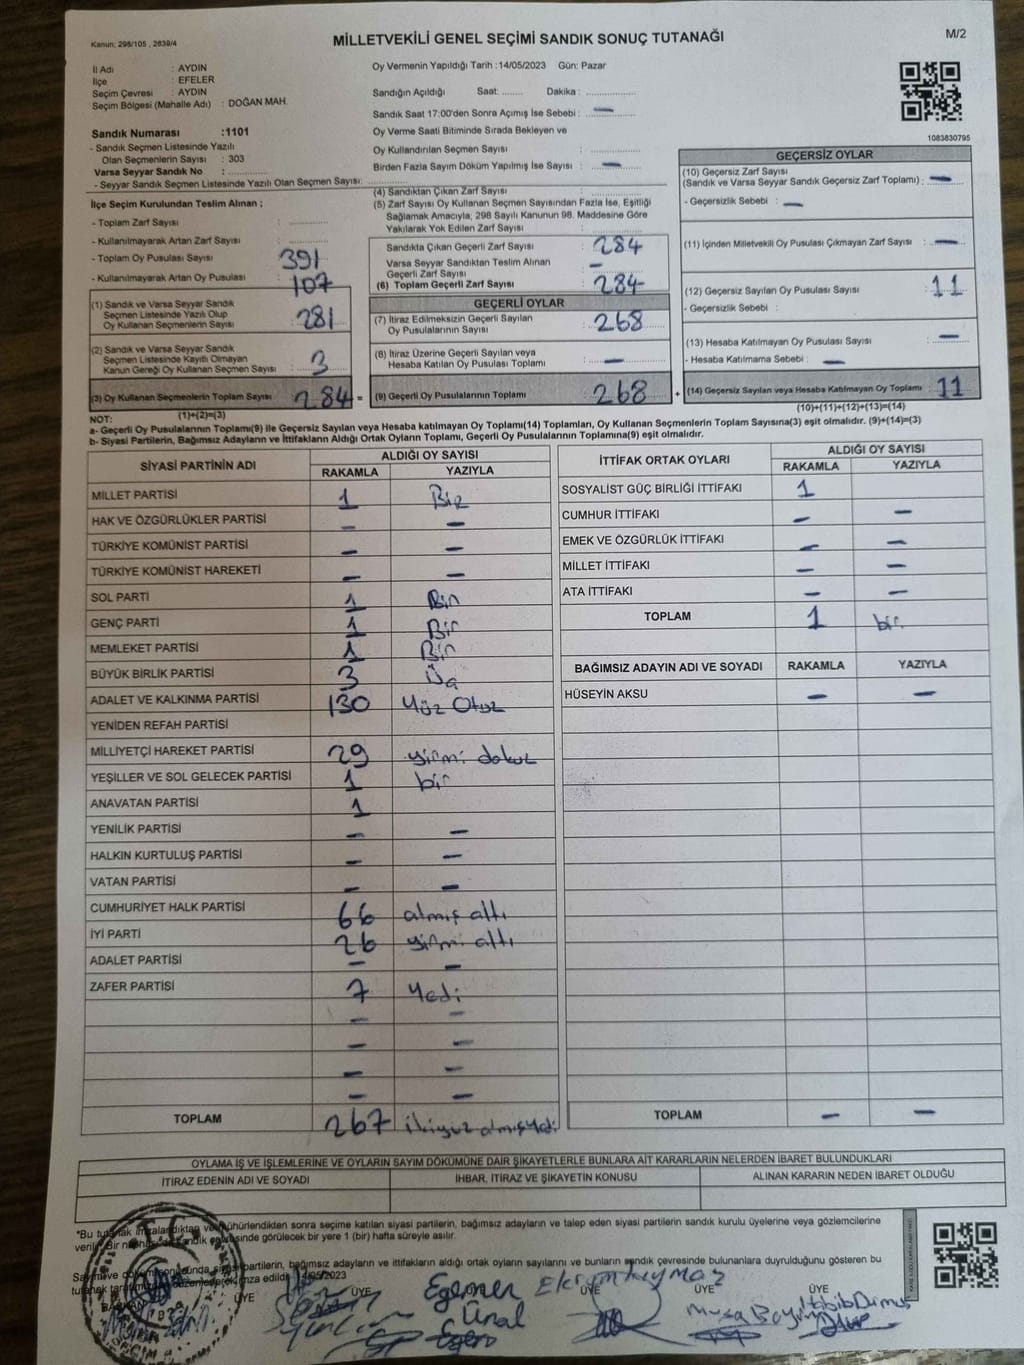 Kanun: 298/105 , 2839/4
MİLLETVEKİLİ GENEL SEÇİMİ SANDIK SONUÇ TUTANAĞI
M/2
İl Adı : AYDIN
İlçe : EFELER
Seçim Çevresi : AYDIN
Seçim Bölgesi (Mahalle Adı) : DOĞAN MAH.
Sandık Numarası :1101
- Sandık Seçmen Listesinde Yazılı
Olan Seçmenlerin Sayısı : 303
Varsa Seyyar Sandık No :
- Seyyar Sandık Seçmen Listesinde Yazılı Olan Seçmen Sayısı:
İlçe Seçim Kurulundan Teslim Alınan ;
- Toplam Zarf Sayısı :
- Kullanılmayarak Artan Zarf Sayısı :
- Toplam Oy Pusulası Sayısı : 391
- Kullanılmayarak Artan Oy Pusulası : 107
(1) Sandık ve Varsa Seyyar Sandık
Seçmen Listesinde Yazılı Olup
Oy Kullanan Seçmenlerin Sayısı : 281
(2) Sandık ve Varsa Seyyar Sandık
Seçmen Listesinde Kayıtlı Olmayan
Kanun Gereği Oy Kullanan Seçmen Sayısı : 3
(3) Oy Kullanan Seçmenlerin Toplam Sayısı : 284 =
(1)+(2)=(3)
Oy Vermenin Yapıldığı Tarih :14/05/2023 Gün: Pazar
Sandığın Açıldığı Saat: ........ Dakika :
Sandık Saat 17:00'den Sonra Açımış İse Sebebi : —
Oy Verme Saati Bitiminde Sırada Bekleyen ve
Oy Kullandırılan Seçmen Sayısı :
Birden Fazla Sayım Döküm Yapılmış İse Sayısı : —
(4) Sandıktan Çıkan Zarf Sayısı :
(5) Zarf Sayısı Oy Kullanan Seçmen Sayısından Fazla İse, Eşitliği
Sağlamak Amacıyla; 298 Sayılı Kanunun 98. Maddesine Göre
Yakılarak Yok Edilen Zarf Sayısı :
Sandıkta Çıkan Geçerli Zarf Sayısı : 284
Varsa Seyyar Sandıktan Teslim Alınan
Geçerli Zarf Sayısı : —
(6) Toplam Geçerli Zarf Sayısı : 284
GEÇERLİ OYLAR
(7) İtiraz Edilmeksizin Geçerli Sayılan
Oy Pusulalarının Sayısı : 268
(8) İtiraz Üzerine Geçerli Sayılan veya
Hesaba Katılan Oy Pusulası Toplamı : —
(9) Geçerli Oy Pusulalarının Toplamı : 268 +
1083830795
GEÇERSİZ OYLAR
(10) Geçersiz Zarf Sayısı
(Sandık ve Varsa Seyyar Sandık Geçersiz Zarf Toplamı) : —
- Geçersizlik Sebebi : —
(11) İçinden Milletvekili Oy Pusulası Çıkmayan Zarf Sayısı : —
(12) Geçersiz Sayılan Oy Pusulası Sayısı : 11
- Geçersizlik Sebebi :
(13) Hesaba Katılmayan Oy Pusulası Sayısı : —
- Hesaba Katılmama Sebebi : —
(14) Geçersiz Sayılan veya Hesaba Katılmayan Oy Toplamı : 11
(10)+(11)+(12)+(13)=(14)
NOT:
a- Geçerli Oy Pusulalarının Toplamı(9) ile Geçersiz Sayılan veya Hesaba katılmayan Oy Toplamı(14) Toplamları, Oy Kullanan Seçmenlerin Toplam Sayısına(3) eşit olmalıdır. (9)+(14)=(3)
b- Siyasi Partilerin, Bağımsız Adayların ve İttifakların Aldığı Ortak Oyların Toplamı, Geçerli Oy Pusulalarının Toplamına(9) eşit olmalıdır.
SİYASİ PARTİNİN ADI ALDIĞI OY SAYISI
RAKAMLA YAZIYLA
MİLLET PARTİSİ 1 Bir
HAK VE ÖZGÜRLÜKLER PARTİSİ — —
TÜRKİYE KOMÜNİST PARTİSİ — —
TÜRKİYE KOMÜNİST HAREKETİ — —
SOL PARTİ 1 Bir
GENÇ PARTİ 1 Bir
MEMLEKET PARTİSİ 1 Bir
BÜYÜK BİRLİK PARTİSİ 3 Üç
ADALET VE KALKINMA PARTİSİ 130 Yüz Otuz
YENİDEN REFAH PARTİSİ
MİLLİYETÇİ HAREKET PARTİSİ 29 yirmi dokuz
YEŞİLLER VE SOL GELECEK PARTİSİ 1 bir
ANAVATAN PARTİSİ 1
YENİLİK PARTİSİ — —
HALKIN KURTULUŞ PARTİSİ — —
VATAN PARTİSİ — —
CUMHURİYET HALK PARTİSİ 66 almış altı
İYİ PARTİ 26 yirmi altı
ADALET PARTİSİ — —
ZAFER PARTİSİ 7 Yedi
— —
— —
— —
— —
TOPLAM 267 ikiyüz almışyedi
İTTİFAK ORTAK OYLARI ALDIĞI OY SAYISI
RAKAMLA YAZIYLA
SOSYALİST GÜÇ BİRLİĞİ İTTİFAKI 1
CUMHUR İTTİFAKI — —
EMEK VE ÖZGÜRLÜK İTTİFAKI — —
MİLLET İTTİFAKI — —
ATA İTTİFAKI — —
TOPLAM 1 bir
BAĞIMSIZ ADAYIN ADI VE SOYADI RAKAMLA YAZIYLA
HÜSEYİN AKSU — —
TOPLAM — —
OYLAMA İŞ VE İŞLEMLERİNE VE OYLARIN SAYIM DÖKÜMÜNE DAİR ŞİKAYETLERLE BUNLARA AİT KARARLARIN NELERDEN İBARET BULUNDUKLARI
İTİRAZ EDENİN ADI VE SOYADI İHBAR, İTİRAZ VE ŞİKAYETİN KONUSU ALINAN KARARIN NEDEN İBARET OLDUĞU
*Bu tutanak imzalandıktan ve mühürlendikten sonra seçime katılan siyasi partilerin, bağımsız adayların ve talep eden siyasi partilerin sandık kurulu üyelerine veya gözlemcilerine
verilir. Bir nüshası da sandık çevresinde görülecek bir yere 1 (bir) hafta süreyle asılır.
Sayım ve döküm sonucunda siyasi partilerin, bağımsız adayların ve ittifakların aldığı ortak oyların sayılarını ve bunların sandık çevresinde bulunanlara duyrulduğunu gösteren bu
tutanak tarafımızdan düzenlenerek imza edildi. 14/05/2023
BAŞKAN ÜYE ÜYE ÜYE ÜYE ÜYE
Egemen
Ünal
Musa